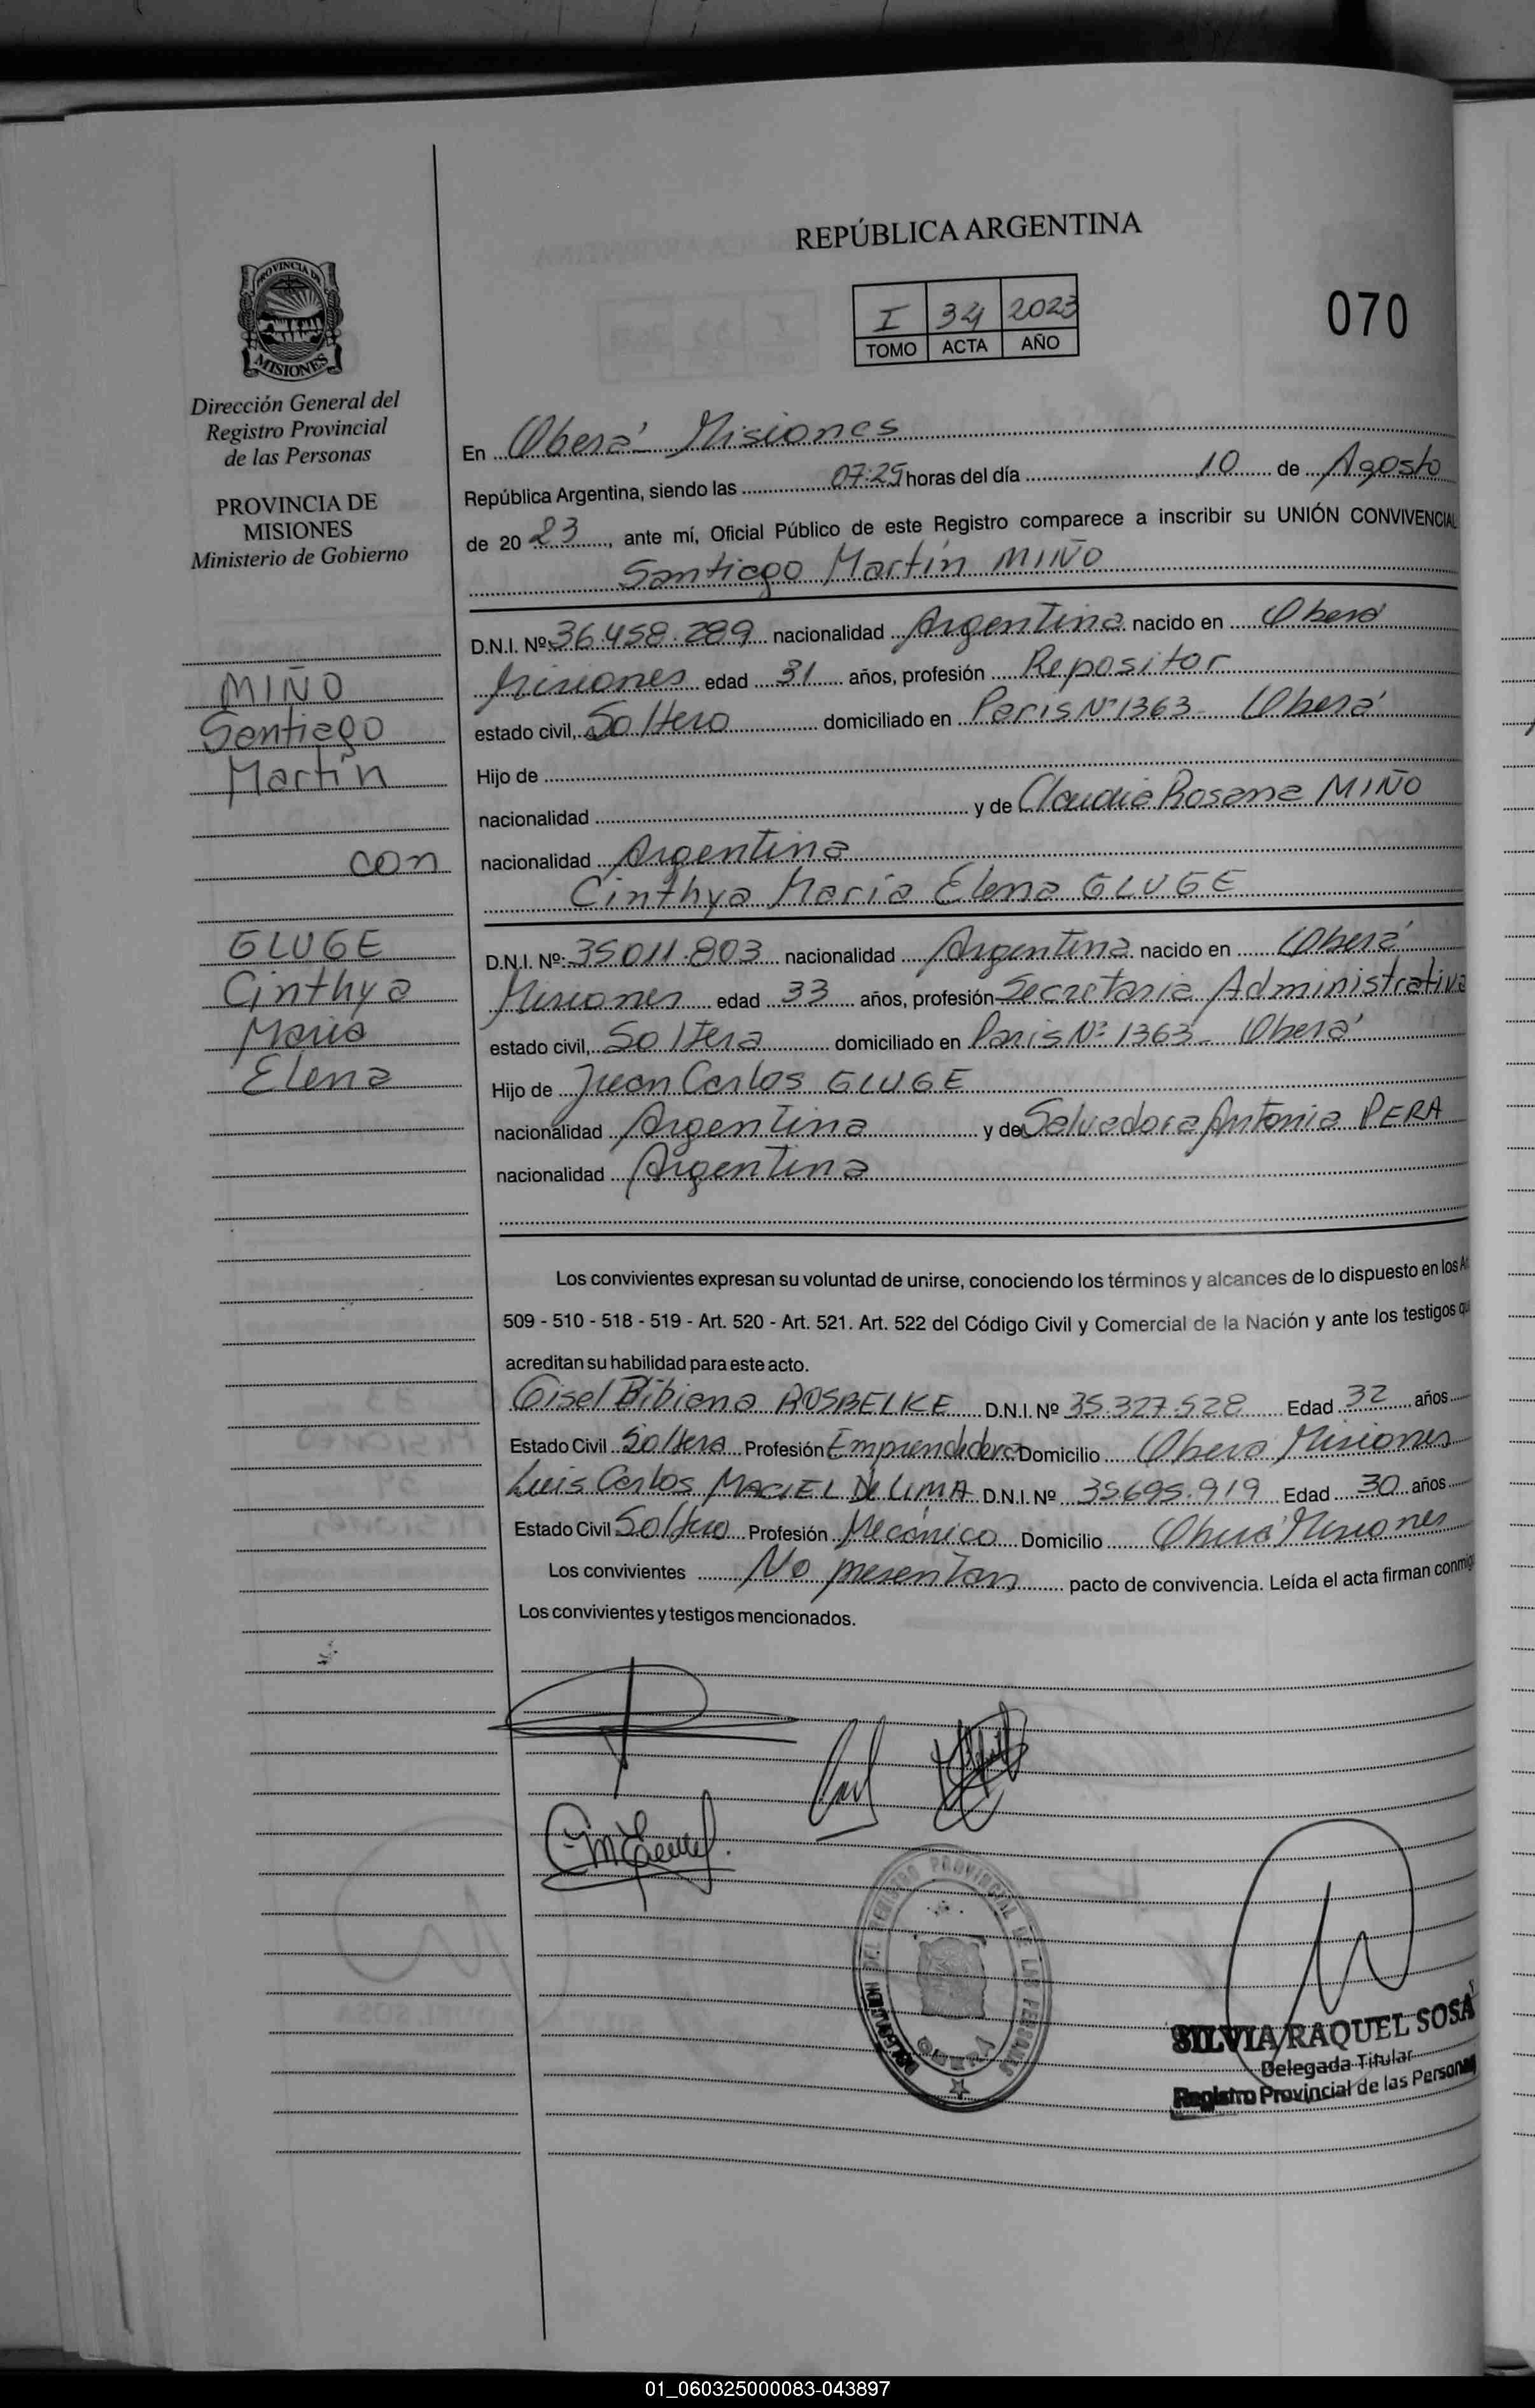 REPÚBLICA ARGENTINA
PROVINCIA DE
MISIONES
I 34 2023
TOMO ACTA AÑO
070
Dirección General del
Registro Provincial
de las Personas
PROVINCIA DE
MISIONES
Ministerio de Gobierno
MIÑO
Santiago
Martín
con
GLUGE
Cinthya
María
Elena
En Oberá - Misiones
República Argentina, siendo las 07:25 horas del día 10 de Agosto
de 2023, ante mí, Oficial Público de este Registro comparece a inscribir su UNIÓN CONVIVENCIAL
Santiago Martín MIÑO
D.N.I. Nº 36.458.289 nacionalidad Argentina nacido en Oberá
Misiones edad 31 años, profesión Repositor
estado civil, Soltero domiciliado en Paris Nº 1363 - Oberá
Hijo de
nacionalidad y de Claudia Rosana MIÑO
nacionalidad Argentina
Cinthya María Elena GLUGE
D.N.I. Nº: 35011.803 nacionalidad Argentina nacido en Oberá
Misiones edad 33 años, profesión Secretaria Administrativa
estado civil, Soltera domiciliado en Paris Nº 1363 - Oberá
Hijo de Juan Carlos GLUGE
nacionalidad Argentina y de Salvadora Antonia PERA
nacionalidad Argentina
Los convivientes expresan su voluntad de unirse, conociendo los términos y alcances de lo dispuesto en los
509 - 510 - 518 - 519 - Art. 520 - Art. 521. Art. 522 del Código Civil y Comercial de la Nación y ante los testigos
acreditan su habilidad para este acto.
Gisel Bibiana ROSBELKE D.N.I. Nº 35.327.528 Edad 32 años
Estado Civil Soltera Profesión Emprendedora Domicilio Oberá Misiones
Luis Carlos MACIEL De LIMA D.N.I. Nº 35695.919 Edad 30 años
Estado Civil Soltero Profesión Mecánico Domicilio Oberá Misiones
Los convivientes No presentan pacto de convivencia. Leída el acta firman
Los convivientes y testigos mencionados.
REGISTRO PROVINCIAL DE LAS PERSONAS
OBERA
SILVIA RAQUEL SOSA
Delegada Titular
Registro Provincial de las Personas
01_060325000083-043897